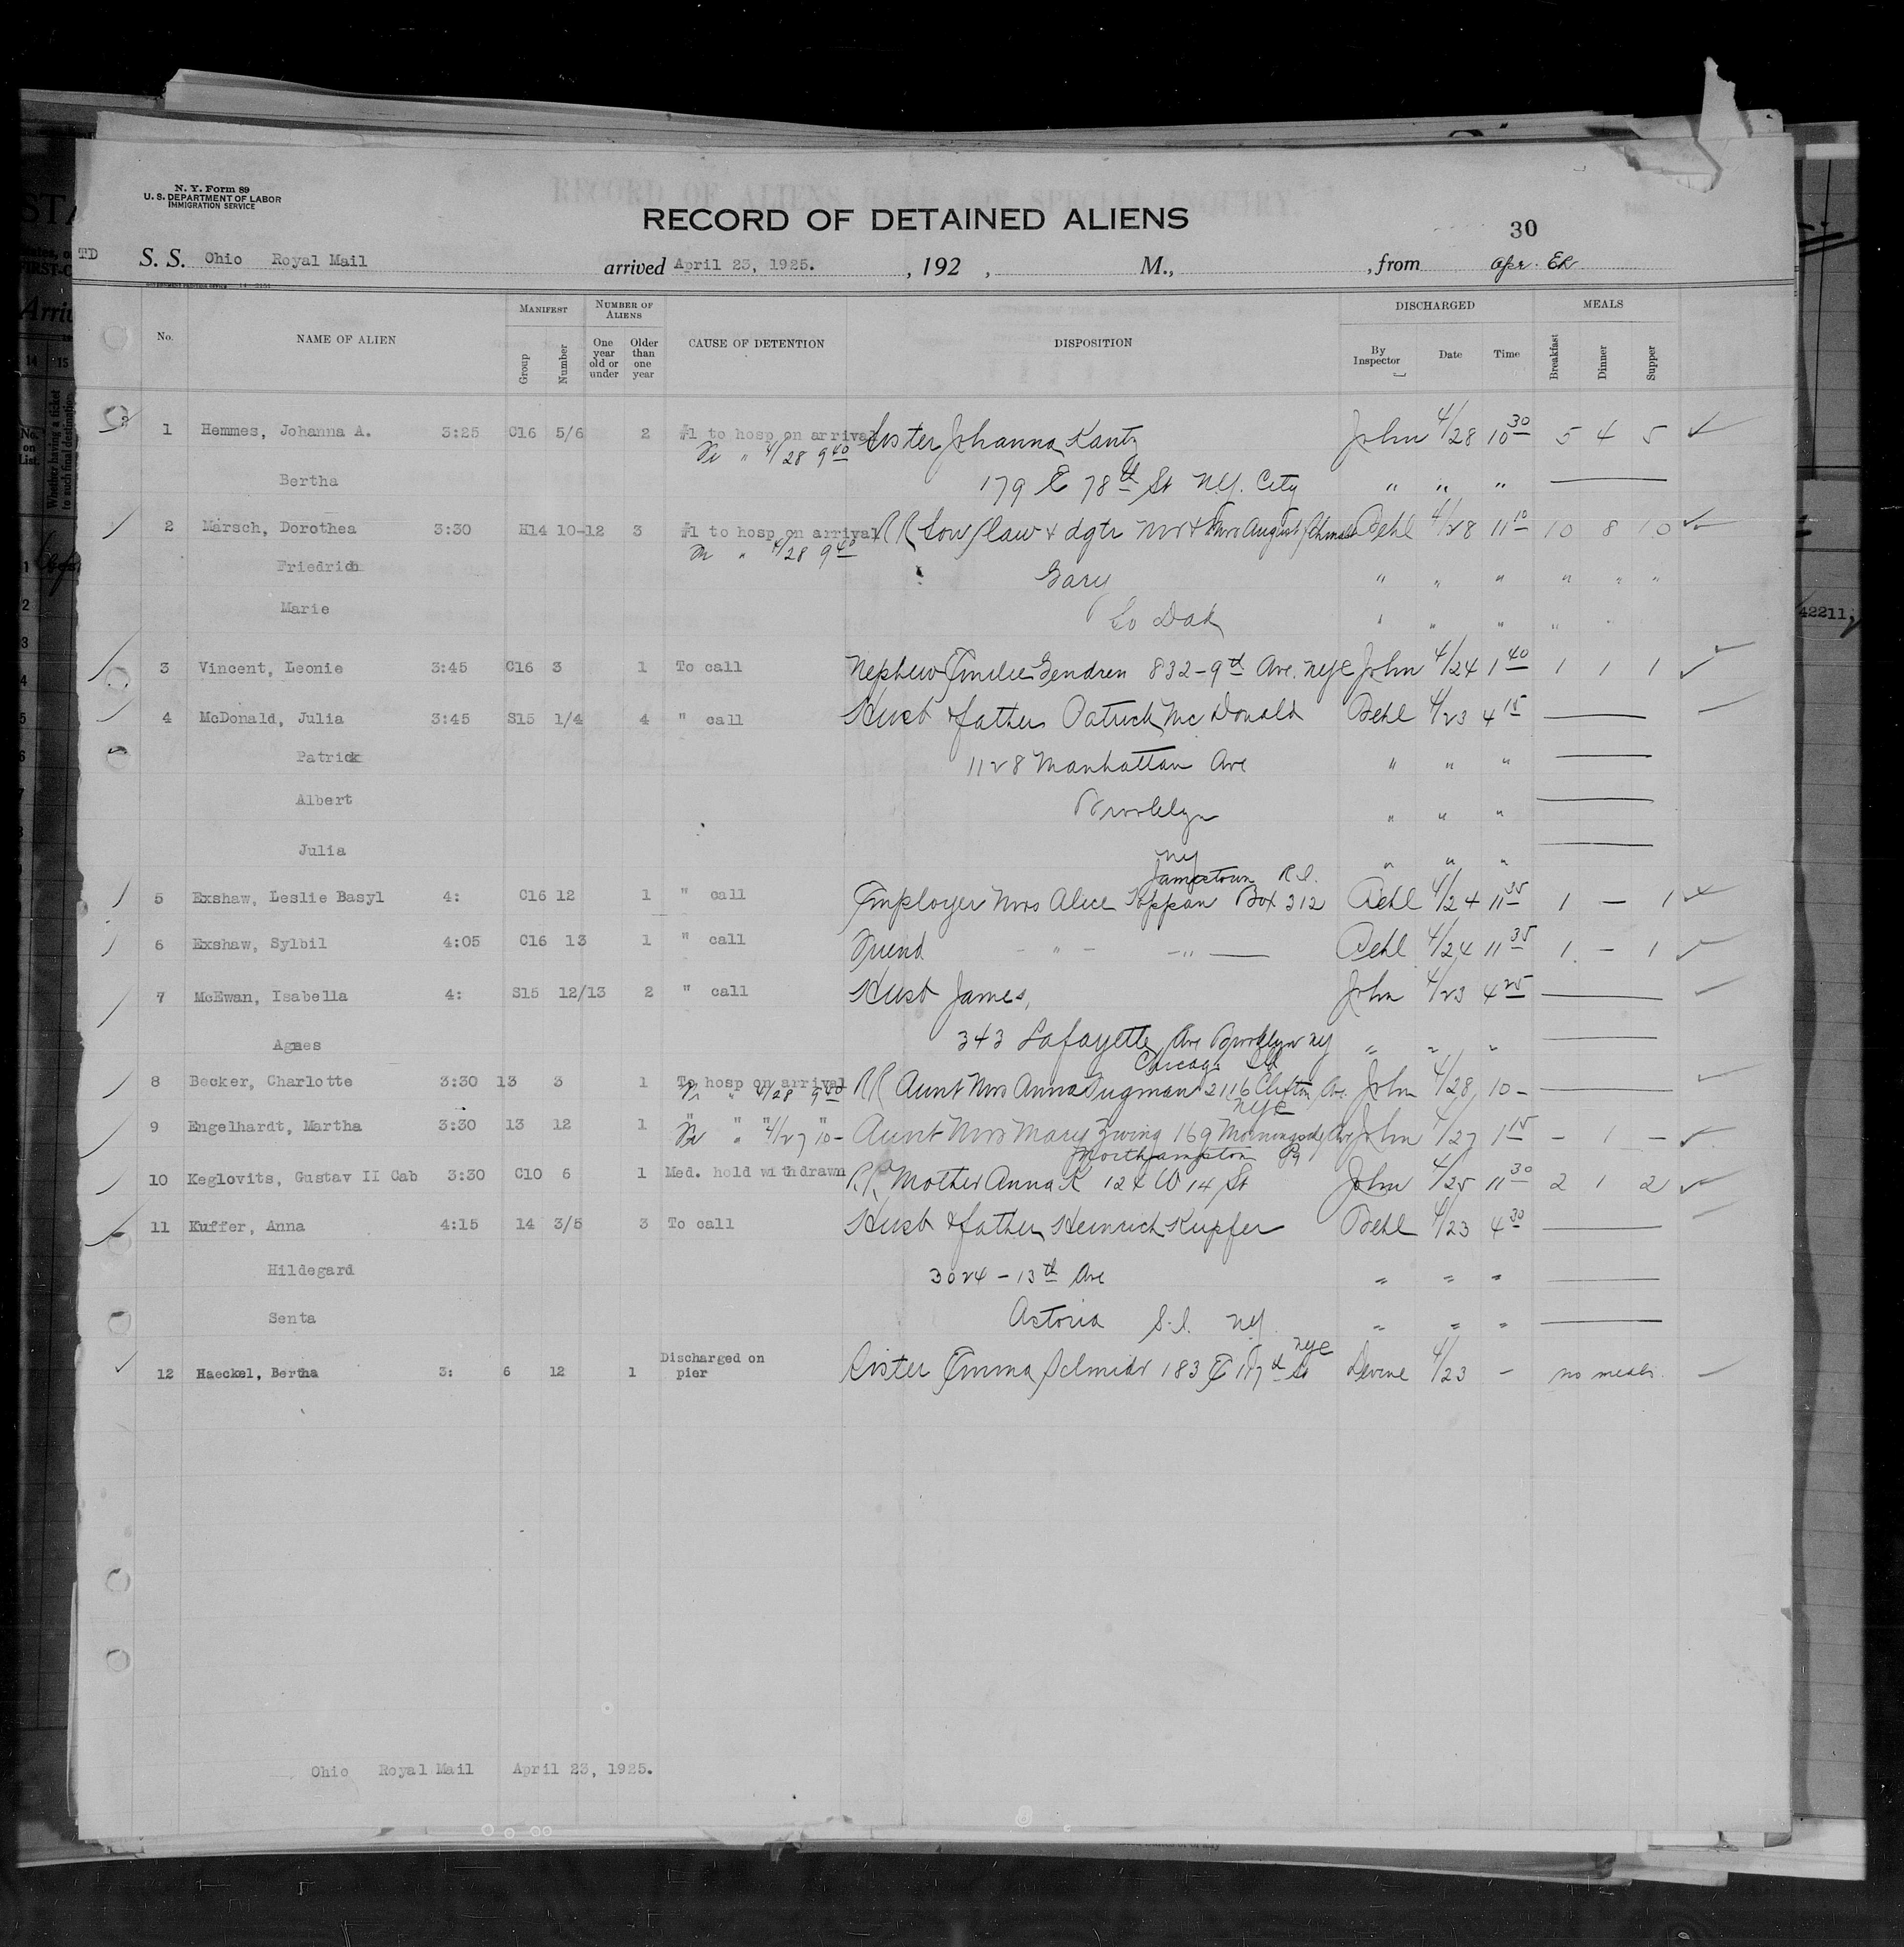 N. Y. Form 89
U. S. DEPARTMENT OF LABOR
IMMIGRATION SERVICE
RECORD OF DETAINED ALIENS
30
TD S. S. Ohio Royal Mail arrived April 23, 1925. , 192 , M., , from
No. NAME OF ALIEN MANIFEST Group Number NUMBER OF ALIENS One year old or under Older than one year CAUSE OF DETENTION DISPOSITION DISCHARGED By Inspector Date Time MEALS Breakfast Dinner Supper
1 Hemmes, Johanna A. 3:25 C16 5/6 2 #1 to hosp on arrival Sister Johanna Kantz John 4/28 10 30 5 4 5
" 4/28 9 40
Bertha 179 E 78th St N.Y. City " " "
2 Marsch, Dorothea 3:30 H14 10-12 3 #1 to hosp on arrival RR Son/law + dgtr Mr + Mrs August Behl 4/28 11 10 10 8 10
" 4/28 9 40
Friedrich Gary " " " " " "
Marie So Dak " " " "
3 Vincent, Leonie 3:45 C16 3 1 To call Nephew Emilie Gendren 832-9th Ave. NYC John 4/24 1 40 1 1 1
4 McDonald, Julia 3:45 S15 1/4 4 " call Husb & father Patrick McDonald Behl 4/23 4 15
Patrick 1128 Manhattan Ave " " "
Albert Brooklyn " " "
Julia NY " " "
Jamestown R.I.
5 Exshaw, Leslie Basyl 4: C16 12 1 " call Employer Mrs Alice Box 312 Behl 4/24 11 35 1 — 1
6 Exshaw, Sylbil 4:05 C16 13 1 " call Friend - " - -"- Behl 4/24 11 35 1 - 1
7 McEwan, Isabella 4: S15 12/13 2 " call Husb James, John 4/23 4 25
Agnes 343 Lafayette Ave Brooklyn NY " " "
Chicago Ill
8 Becker, Charlotte 3:30 13 3 1 To hosp on arrival RR Aunt Mrs Anna Tugman 2116 Clifton Av. John 4/28 10 -
" 4/28 9 40
NYC
9 Engelhardt, Martha 3:30 13 12 1 " " " Aunt Mrs Mary Zwing 169 Morningside Av John 4/27 1 15 - 1 -
" 4/27 10 -
Northampton Pa
10 Keglovits, Gustav II Cab 3:30 C10 6 1 Med. hold withdrawn RR Mother Anna K 124 W 14 St John 4/25 11 30 2 1 2
11 Kuffer, Anna 4:15 14 3/5 3 To call Husb & father Heinrich Kupfer Behl 4/23 4 30
Hildegard 3024 - 13th Ave " " "
Senta Astoria L.I. NY. " " "
NYC
12 Haeckel, Bertha 3: 6 12 1 Discharged on pier Sister Emma Schmidt 183 E 117th St Devine 4/23 - no meals
Ohio Royal Mail April 23, 1925.
42211,